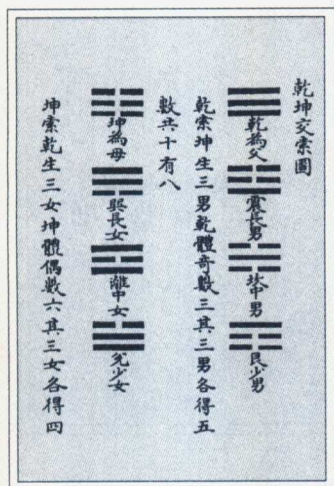 乾坤交索圖
乾為父 震長男 坎中男 艮少男
乾索坤生三男乾體奇數三其三男各得五
數共十有八
坤為母 巽長女 離中女 兌少女
坤索乾生三女坤體偶數六其三女各得四